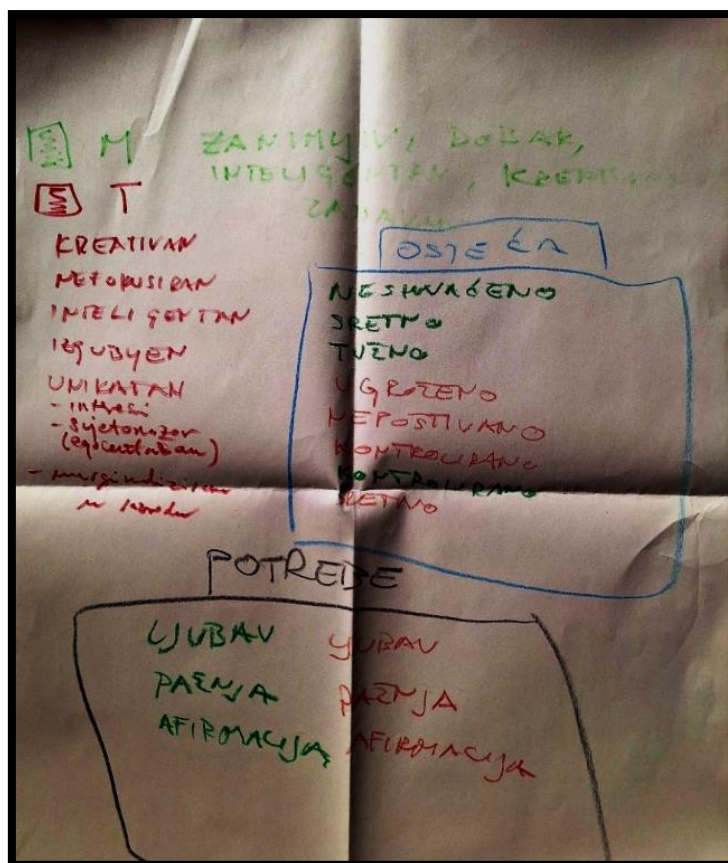 M ZANIMLJIV, DOBAR,
INTELIGENTAN, KREATIVAN
T
KREATIVAN
NEFOKUSIRAN
INTELIGENTAN
IZGUBLJEN
UNIKATAN
- interesi
- svjetonazor
(egocentričan)
OSJEĆA
NESHVAĆENO
SRETNO
TUŽNO
UGROŽENO
NEPOŠTIVANO
KONTROLIRANO
KONTROLIRANO
SRETNO
POTREBE
LJUBAV LJUBAV
PAŽNJA PAŽNJA
AFIRMACIJA AFIRMACIJA